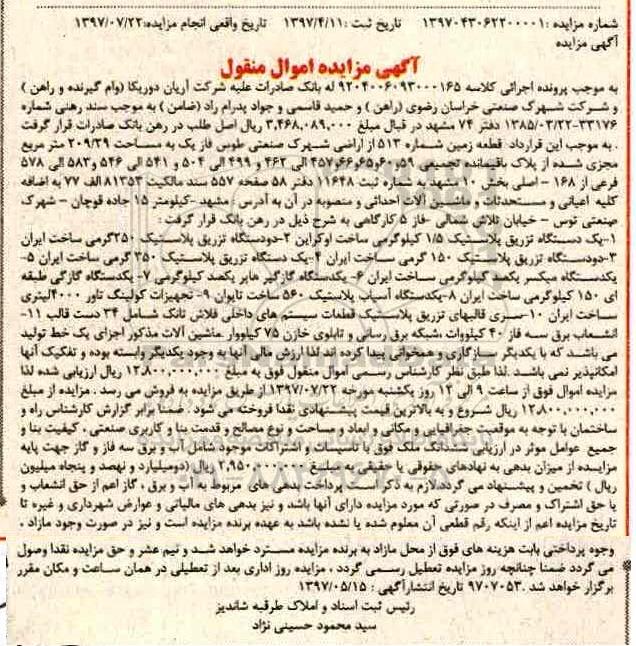 شماره مزایده :۱۳۹۷۰۴۳۰۶۲۲۰۰۰۰۱ تاریخ ثبت :۱۳۹۷/۴/۱۱ تاریخ واقعی انجام مزایده:۱۳۹۷/۰۷/۲۲
آگهی مزایده
آگهی مزایده اموال منقول
به موجب پرونده اجرائی کلاسه ۹۲۰۴۰۰۶۰۹۳۰۰۰۱۶۵ له بانک صادرات علیه شرکت آریان دوریکا (وام گیرنده و راهن )
و شرکت شهرک صنعتی خراسان رضوی (راهن ) و حمید قاسمی و جواد پدرام راد (ضامن ) به موجب سند رهنی شماره
۳۳۱۷۶-۱۳۸۵/۰۲/۲۲ دفتر ۷۴ مشهد در قبال مبلغ ۳,۴۶۸,۰۸۹,۰۰۰ ریال اصل طلب در رهن بانک صادرات قرار گرفت
. به موجب این قرارداد قطعه زمین شماره ۵۱۳ از اراضی شهرک صنعتی طوس فاز یک به مساحت ۲۰۹/۲۹ متر مربع
مجزی شده از پلاک باقیمانده تجمیعی ۵۹و۶۰و۶۵و۶۶و۴۵۷ الی ۴۶۲ و ۴۹۹ الی ۵۰۴ و ۵۴۱ الی ۵۴۶ و۵۸۳ الی ۵۷۸
فرعی از ۱۶۸ - اصلی بخش ۱۰ مشهد به شماره ثبت ۱۱۶۴۸ دفتر ۵۸ صفحه ۵۵۷ سند مالکیت ۸۱۳۵۳ الف ۷۷ به اضافه
کلیه اعیانی و مستحدثات و ماشین آلات احداثی و منصوبه در آن به آدرس مشهد -کیلومتر ۱۵ جاده قوچان - شهرک
صنعتی توس - خیابان تلاش شمالی -فاز ۵ کارگاهی به شرح ذیل در رهن بانک قرار گرفت :
۱-یک دستگاه تزریق پلاستیک ۱/۵ کیلوگرمی ساخت اوکراین ۲-دودستگاه تزریق پلاستیک ۲۵۰گرمی ساخت ایران
۳-دودستگاه تزریق پلاستیک ۱۵۰ گرمی ساخت ایران ۴-یک دستگاه تزریق پلاستیک ۳۵۰ گرمی ساخت ایران ۵-
یکدستگاه میکسر یکصد کیلوگرمی ساخت ایران ۶- یکدستگاه گازگیر هاپر یکصد کیلوگرمی ۷- یکدستگاه گازگی طبقه
ای ۱۵۰ کیلوگرمی ساخت ایران ۸-یکدستگاه آسیاب پلاستیک ۵۶۰ ساخت تایوان ۹- تجهیزات کولینگ تاور ۴۰۰۰لیتری
ساخت ایران ۱۰-سری قالبهای تزریق پلاستیک قطعات سیستم های داخلی فلاش تانک شامل ۳۴ دست قالب ۱۱-
انشعاب برق سه فاز ۴۰ کیلووات ،شبکه برق رسانی و تابلوی خازن ۷۵ کیلووار .ماشین آلات مذکور اجزای یک خط تولید
می باشد که با یکدیگر سازگاری و همخوانی پیدا کرده اند لذا ارزش مالی آنها به وجود یکدیگر وابسته بوده و تفکیک آنها
امکانپذیر نمی باشد .لذا طبق نظر کارشناس رسمی اموال منقول فوق به مبلغ ۱۲,۸۰۰,۰۰۰,۰۰۰ ریال ارزیابی شده لذا
مزایده اموال فوق از ساعت ۹ الی ۱۲ روز یکشنبه مورخه ۱۳۹۷/۰۷/۲۲ از طریق مزایده به فروش می رسد . مزایده از مبلغ
۱۲,۸۰۰,۰۰۰,۰۰۰ ریال شروع و به بالاترین قیمت پیشنهادی نقدا فروخته می شود . ضمنا برابر گزارش کارشناس راه و
ساختمان با توجه به موقعیت جغرافیایی و مکانی و ابعاد و مساحت و نوع مصالح و قدمت بنا و کاربری صنعتی ، کیفیت بنا و
جمیع عوامل موثر در ارزیابی ششدانگ ملک فوق با تاسیسات و اشتراکات موجود شامل آب و برق سه فاز و گاز جهت پایه
مزایده از میزان بدهی به نهادهای حقوقی یا حقیقی به مبلغ ۲,۹۵۰,۰۰۰,۰۰۰ ریال (دومیلیارد و نهصد و پنجاه میلیون
ریال ) تخمین و پیشنهاد می گردد.لازم به ذکر است پرداخت بدهی های مربوط به آب و برق ، گاز اعم از حق انشعاب و
یا حق اشتراک و مصرف در صورتی که مورد مزایده دارای آنها باشد و نیز بدهی های مالیاتی و عوارض شهرداری و غیره تا
تاریخ مزایده اعم از اینکه رقم قطعی آن معلوم شده یا نشده باشد به عهده برنده مزایده است و نیز در صورت وجود مازاد ،
وجوه پرداختی بابت هزینه های فوق از محل مازاد به برنده مزایده مسترد خواهد شد و نیم عشر و حق مزایده نقدا وصول
می گردد ضمنا چنانچه روز مزایده تعطیل رسمی گردد ، مزایده روز اداری بعد از تعطیلی در همان ساعت و مکان مقرر
برگزار خواهد شد .۹۷۰۷۰۵۳ تاریخ انتشارآگهی : ۱۳۹۷/۰۵/۱۵
رئیس ثبت اسناد و املاک طرقبه شاندیز
سید محمود حسینی نژاد